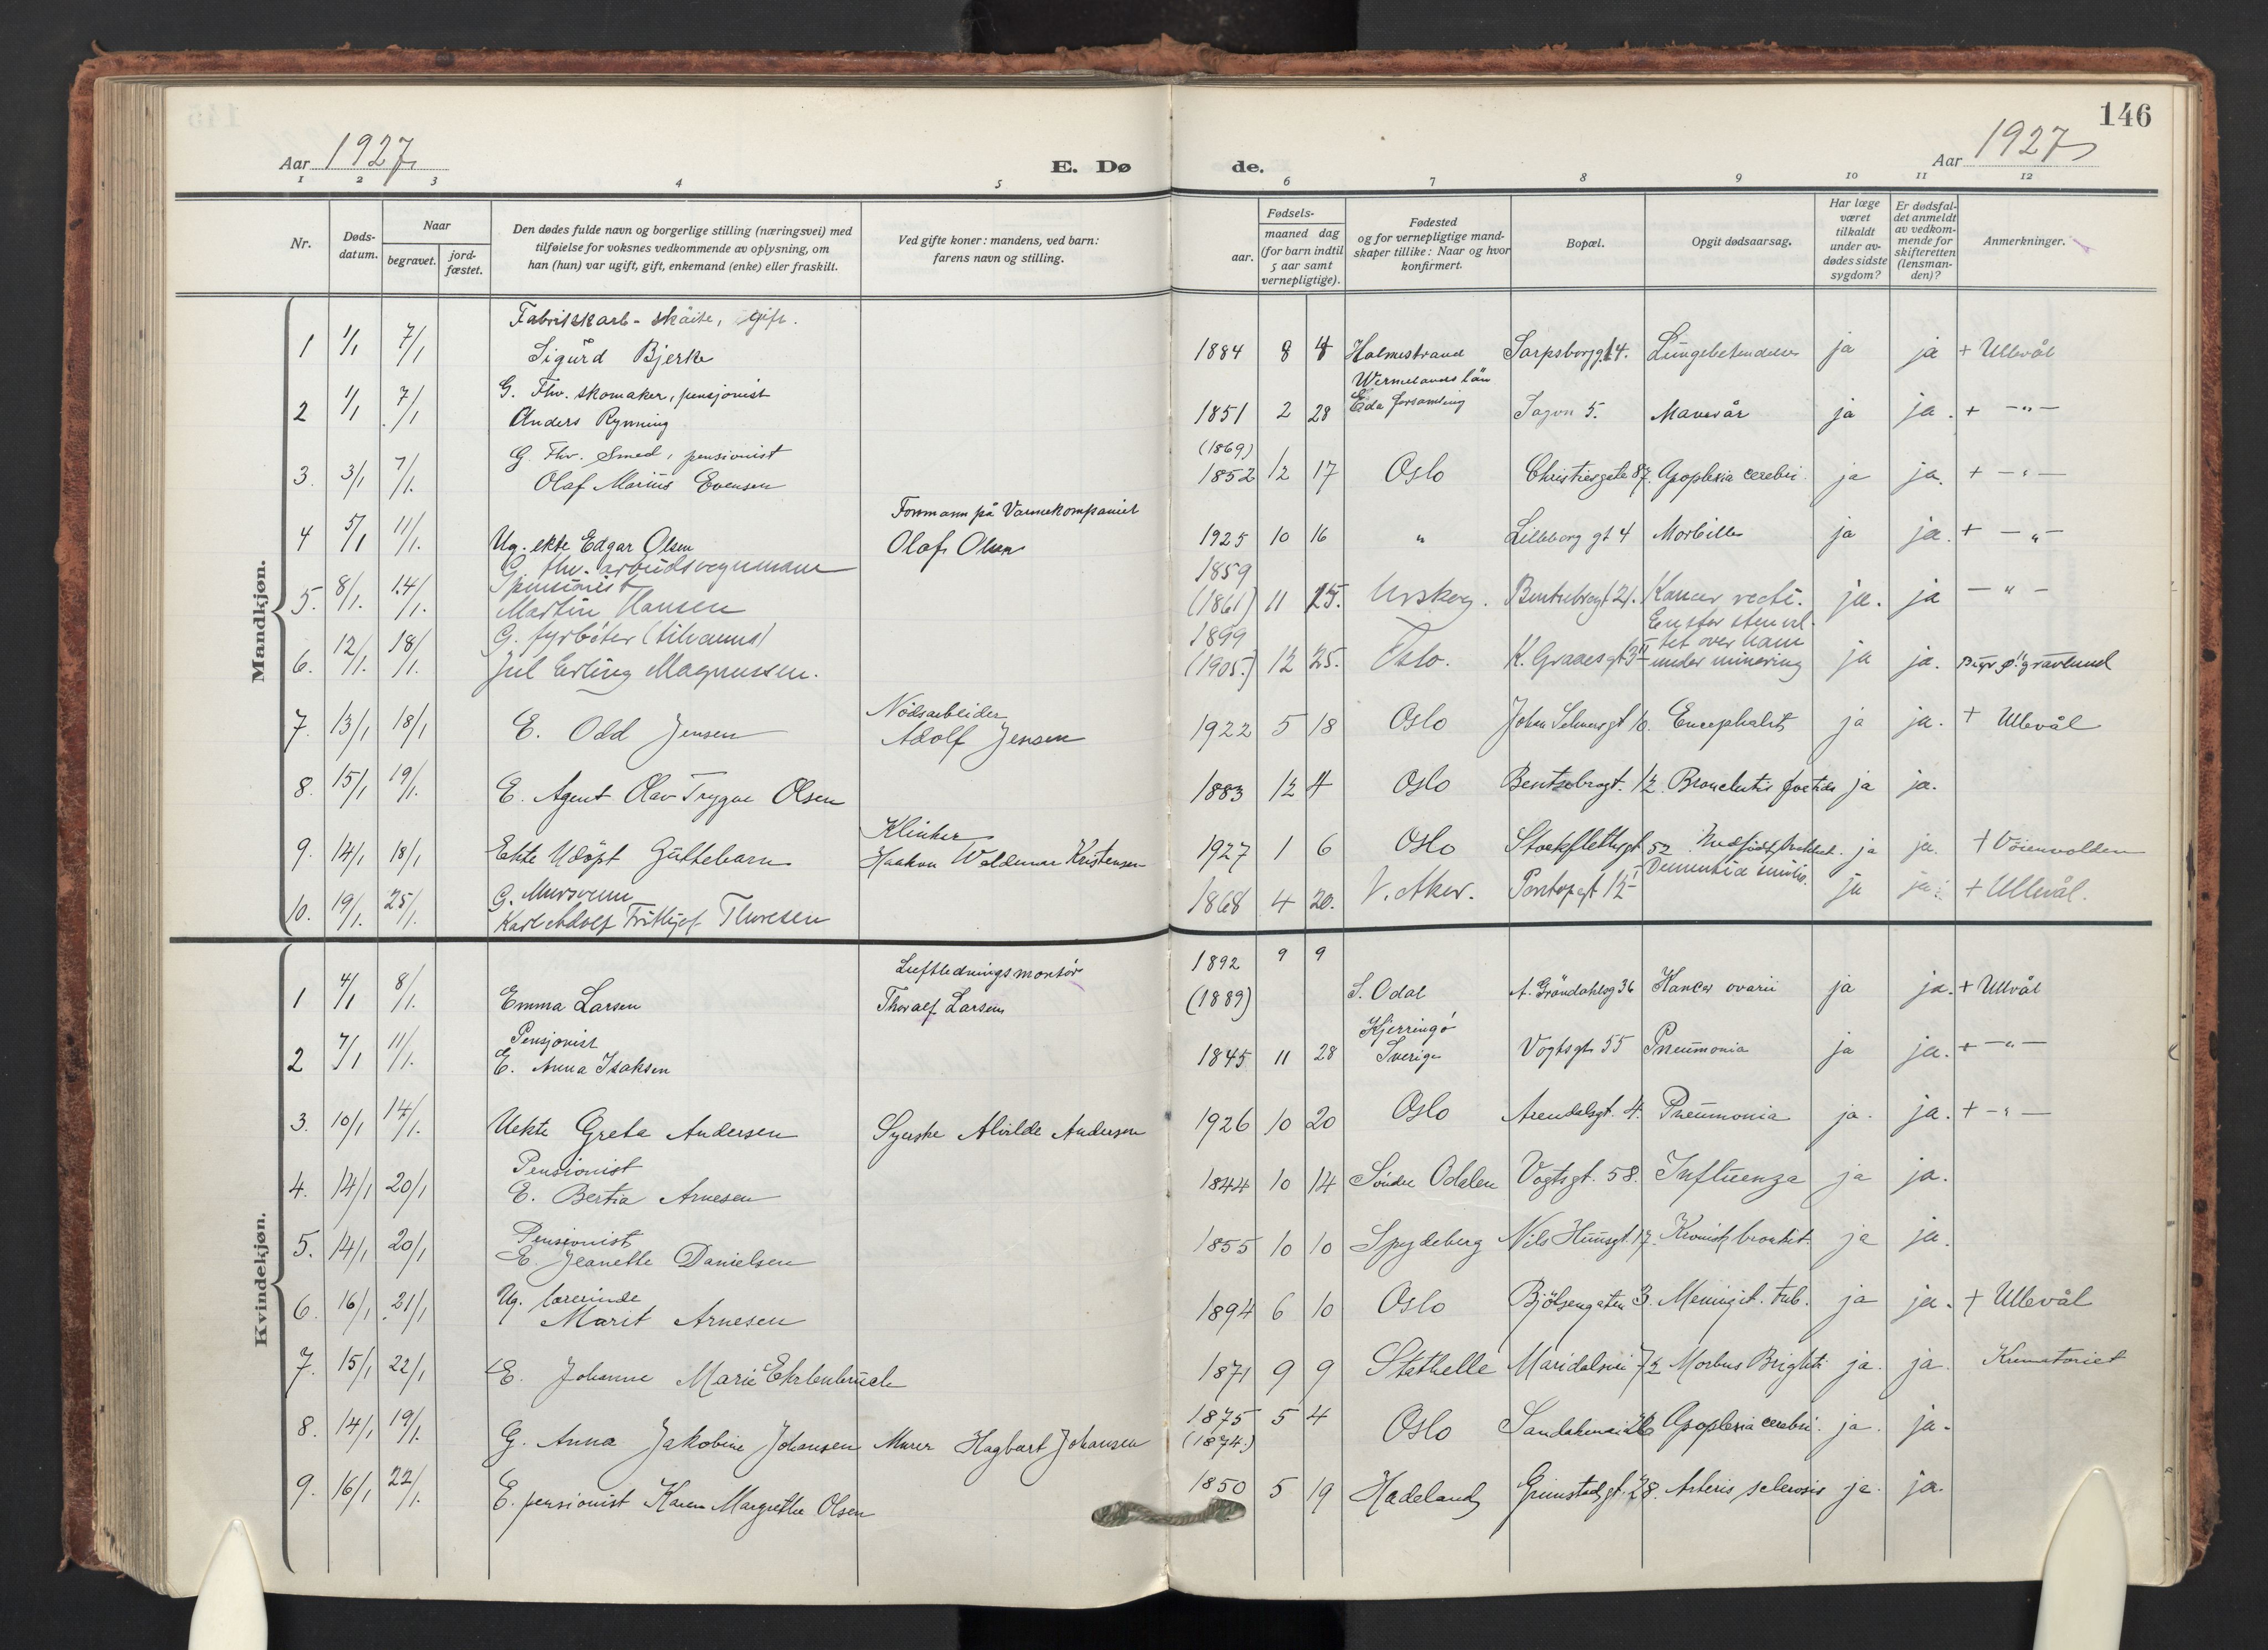 146
Aar 1927
E. Dø de.
Aar 1927
1 2 3 4 5 6 7 8 9 10 11 12
Nr.
Døds-
datum.
Naar
begravet.
jord-
fæstet.
Den dødes fulde navn og borgerlige stilling (næringsvei) med
tilføielse for voksnes vedkommende av oplysning, om
han (hun) var ugift, gift, enkemand (enke) eller fraskilt.
Ved gifte koner: mandens, ved barn:
farens navn og stilling.
Fødsels-
aar.
maaned dag
(for barn indtil
5 aar samt
vernepligtige).
Fødested
og for vernepligtige mand-
skaper tillike: Naar og hvor
konfirmert.
Bopæl.
Opgit dødsaarsag.
Har læge
været
tilkaldt
under av-
dødes sidste
sygdom?
Er dødsfal-
det anmeldt
av vedkom-
mende for
skifteretten
(lensman-
den)?
Anmerkninger.
Mandkjøn.
Fabrikkarb- gift.
1 1/1 7/1 Sigurd Bjerke 1884 8 4 Holmestrand Sarpsborggt 4. Lungebetendelse ja ja + Ullevål
G. Fhv. skomaker, pensjonist Wermelands län
2 1/1 7/1 Anders Rynning 1851 2 28 Eda forsamling Sagvn 5. Mavesår ja ja. + -"-
G. Fhv. Smed, pensionist (1869)
3. 3/1 7/1. Olaf Marius Evensen 1852 12 17 Oslo Christiesgate 37. Apoplexia cerebri ja ja. + -"-
Formann på Varmekompaniet
4 5/1 11/1. Ug. ekte Edgar Olsen Olaf Olsen 1925 10 16 " Lilleborg gt 4 Morbilli ja ja. + -"-
G. fhv. arbeidsvognmann 1859
pensionist
5. 8/1. 14/1. Martin Hansen (1861) 11 25. Urskog. Bentsebrogt 21. Kancer recti. ja. ja -"-
G. fyrböter (tilvanns) 1899 En stor sten vel-
tet over ham
6. 12/1. 18/1. Jul Erling Magnussen. (1905.) 12 25. Oslo. K. Graaesgt 3 under minering ja ja. gravlund
Nödsarbeider
7. 13/1 18/1 E. Odd Jensen Adolf Jensen 1922 5 18 Oslo Johan Selmersgt 10. Encephalit ja ja. + Ullevål
8. 15/1 19/1. E. Agent Olav Trygve Olsen 1883 12 4 Oslo Bentsebrogt. 12. Bronchitis foetida ja ja.
Klinker
9. 14/1 18/1 Ekte Udöpt Guttebarn Haakon Woldemar Kristensen 1927 1 6 Oslo Stockflethsgt 52 ja ja. + Vöienvolden
G. Mursvenn Dementia senilis.
10. 19/1. 25/1. Karl Adolf Frithjof Thoresen 1868 4 20. V. Aker. Pontopgt 12 ja ja. + Ullevål.
Kvindekjøn.
Luftledningsmontör 1892 9 9
1 4/1 8/1. Emma Larsen Thoralf Larsen (1889) S. Odal A. Gröndahlsg 36 Kancer ovarii ja ja. + Ullevål
Pensjonist Kjerringö
2 7/1 11/1. E. Anna Isaksen 1845 11 28 Sverige Vogtsgt 55 Pneumonia ja ja. + -"-
3. 10/1 14/1. Uekte Greta Andersen Syerske Alvilde Andersen 1926 10 20 Oslo Arendalsgt. 4. Pneumonia ja. ja. + -"-
Pensionist
4. 14/1 20/1 E. Bertia Arnesen 1844 10 14 Söndre Odalen Vogtsgt. 58. Influenza ja ja.
Pensionist
5. 14/1 20/1 E. Jeanette Danielsen 1855 10 10 Spydeberg Nils Huusgt. 17. Kronisk bronkit. ja ja.
Ug. lærerinde
6. 16/1 21/1 Marit Arnesen 1894 6 10 Oslo Bjölsengaten 3. Meningit. tub. ja ja. + Ullevål
7. 15/1 22/1 E. Johanne Marie Ehrlenbruch 1871 9 9 Stathelle Maridalsvei 72 Morbus Brighti ja. ja. Krematoriet
1875
8. 14/1 19/1. G. Anna Jakobine Johansen Murer Hagbart Johansen (1874.) 5 4 Oslo Apoplexia cerebri. ja. ja.
9. 16/1 22/1. E. pensionist Karen Margrethe Olsen 1850 5 19 Hadeland Grimstadgt. 28. Arterio sclerosis ja. ja.